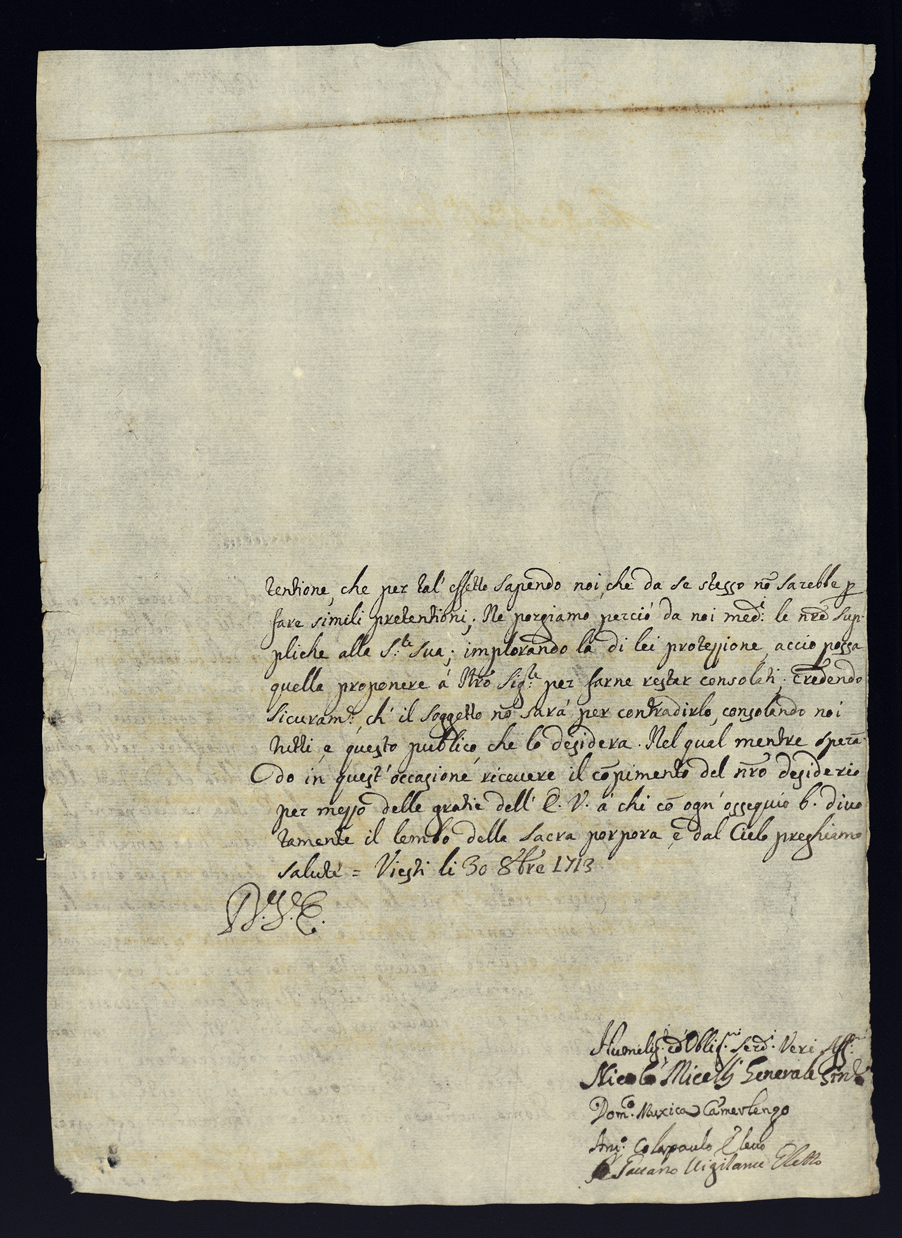 tentione, che per tal' effetto sapendo noi, che da se stesso nõ sarebbe p
fare simili pretentioni; Ne porgiamo perciò da noi med.i le nr̃e sup-
pliche alla S.tà Sua; implorando la di lei protezzione, acciò possa
quella proponere à Nr̃o Sig.re per farne restar consolati; credendo
sicuram.te, ch' il soggetto nõ sarà per contradirlo, consolando noi
tutti, e questo publico, che lo desidera. Nel qual mentre spera-
do in quest' occasione, ricevere il cõpimento del nr̃o desiderio
per mezzo delle gratie dell' E. V. à chi cõ ogn' ossequio b. divo
tamente il lembo della sacra porpora, e dal Cielo preghiamo
salute = Viesti li 30 8bre 1713
D. V. E.
Humiliss.i ed Oblig.mi Ser.ri Veri Aff.mi
Nicolò Generale Sind.
Dom.co Nuxica Camerlengo
Ant.o Colapaulo Eletto
Vigilante Eletto